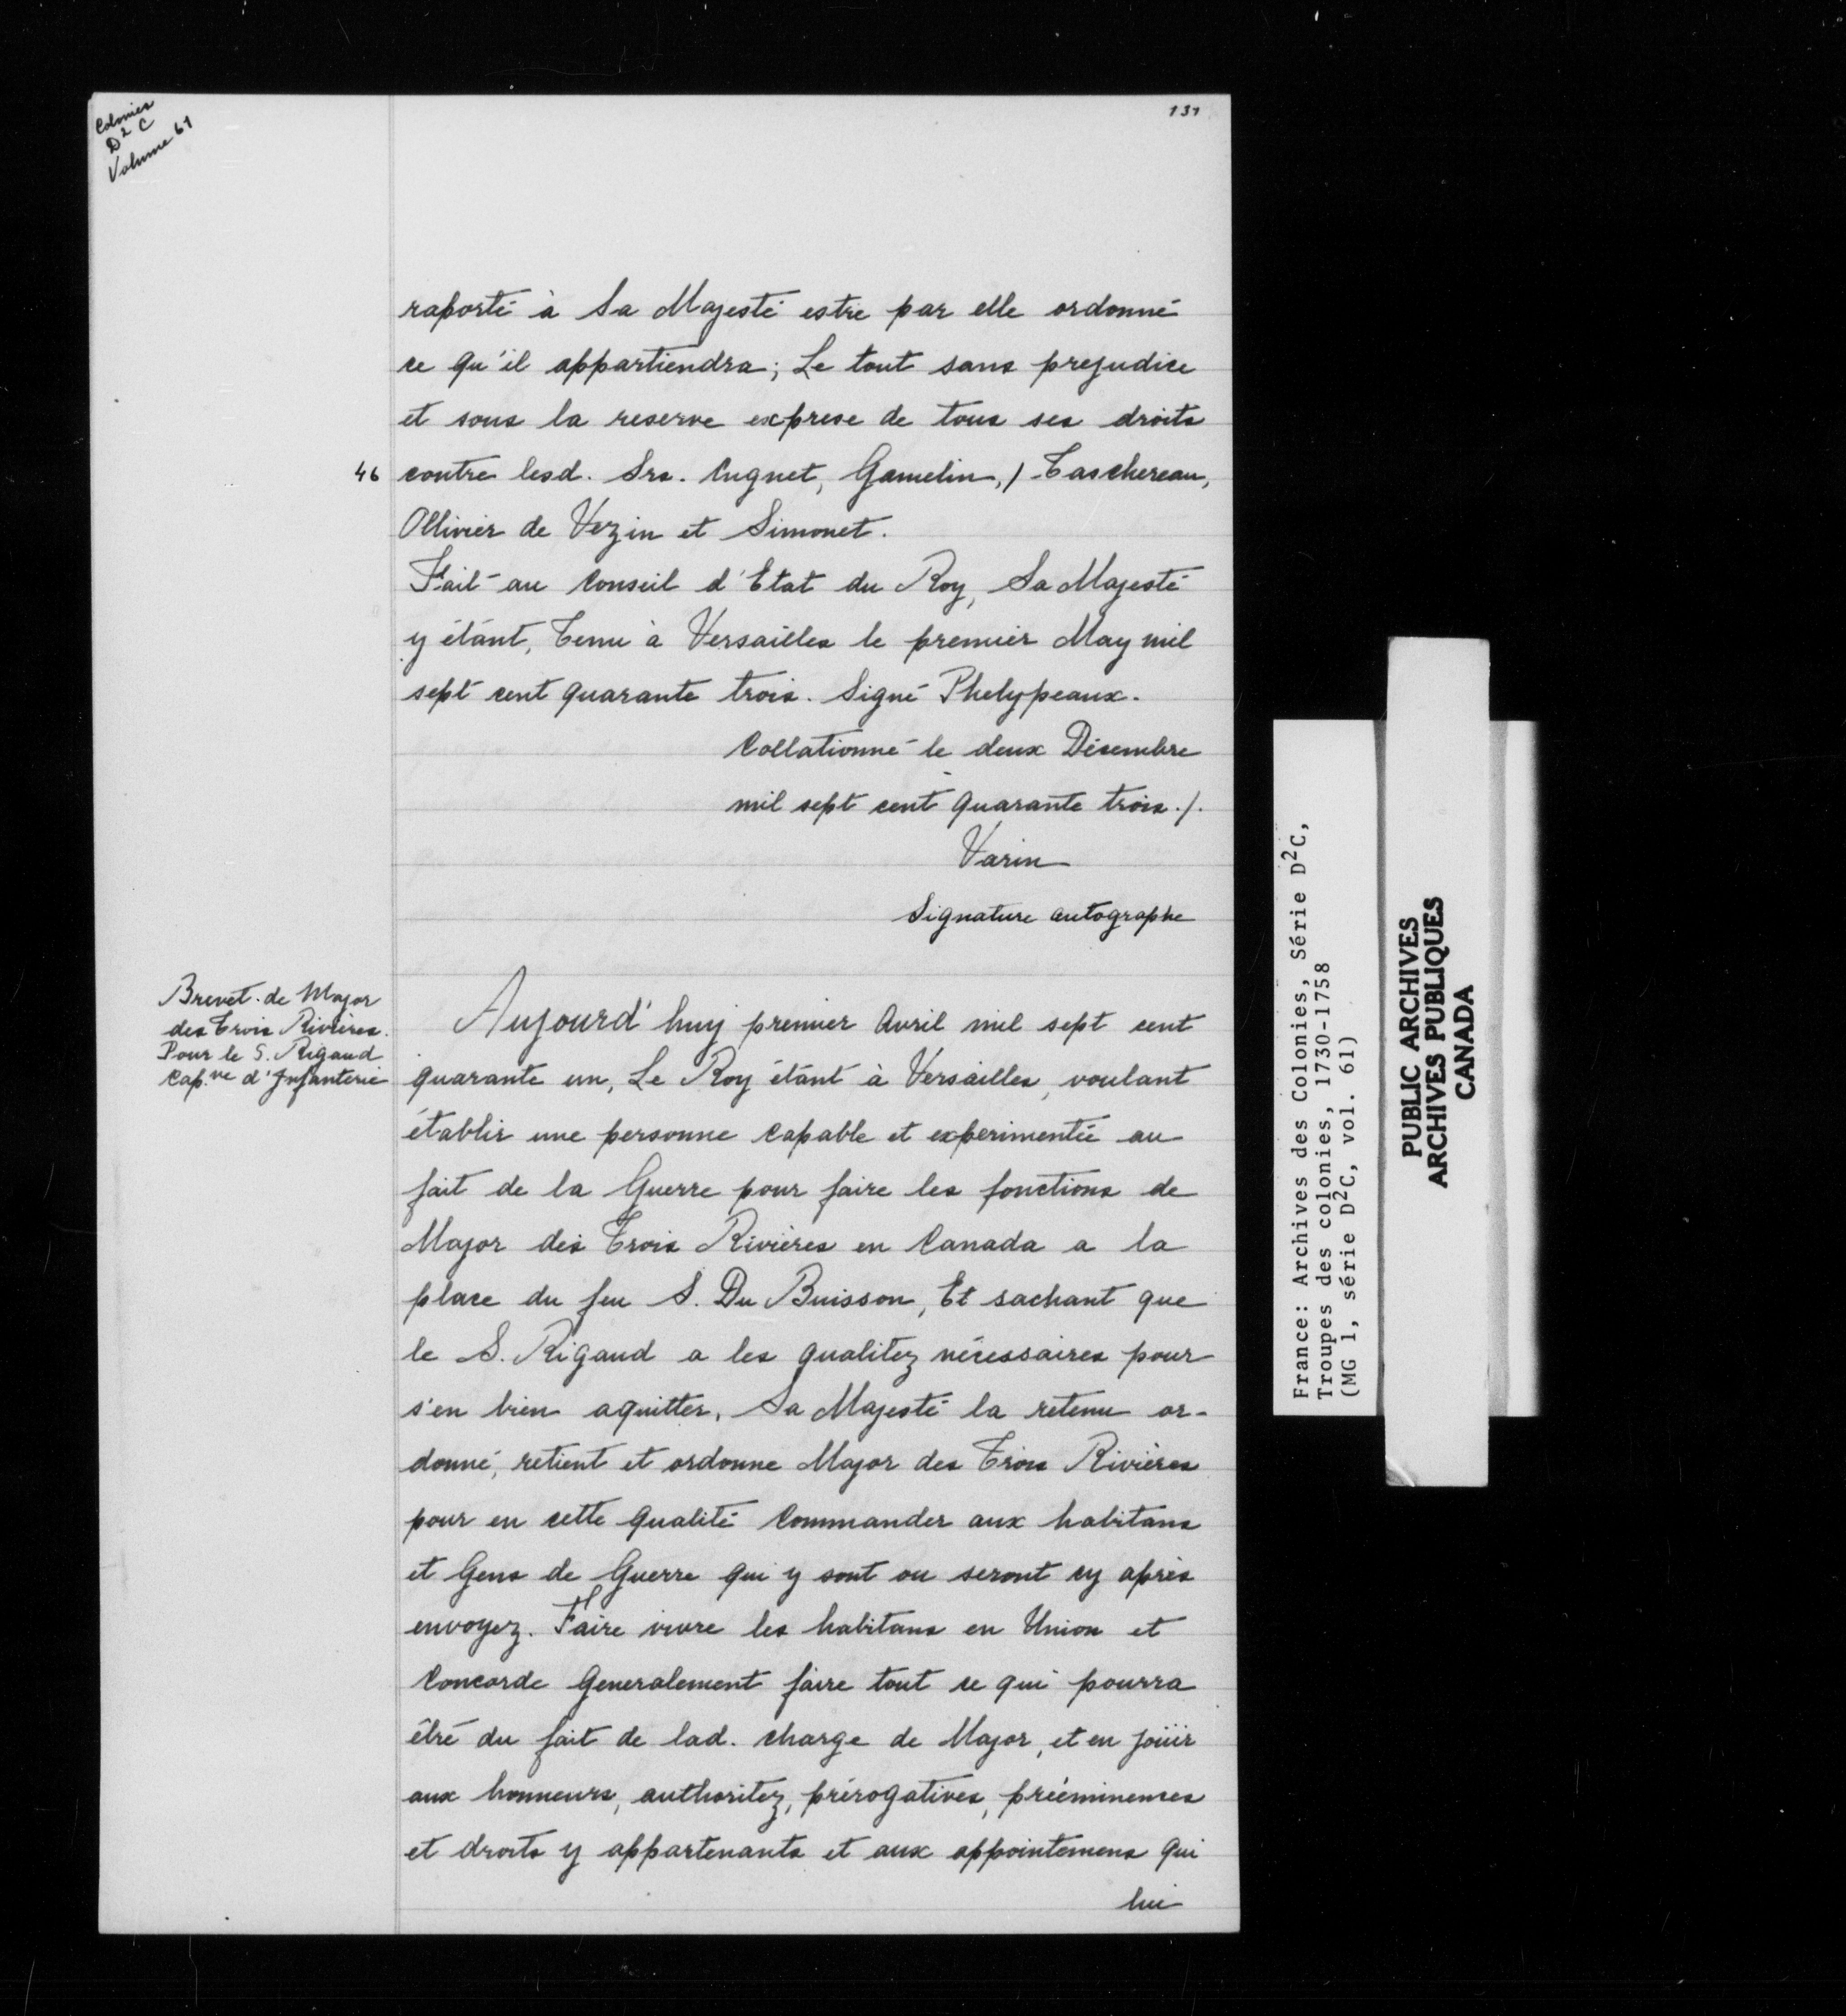 Colonies
D2 C
Volume 61
131
raporté à Sa Majesté estre par elle ordonné
ce qu'il appartiendra; Le tout sans prejudice
et sous la reserve exprese de tous ses droits
46 contre lesd. Srs. Cugnet, Gamelin, / Taschereau,
Ollivier de Vezin et Simonet.
Fait au Conseil d'Etat du Roy, Sa Majesté
y étant, Tenu à Versailles le premier May mil
sept cent quarante trois. Signé Phelypeaux.
Collationné le deux Décembre
mil sept cent quarante trois ./.
Varin
Signature autographe
Brevet de Major
des Trois Rivières.
Pour le S. Rigaud
Cap.ne d'Infanterie
Aujourd'huy premier Avril mil sept cent
quarante un, Le Roy étant à Versailles, voulant
établir une personne capable et experimentée au
fait de la Guerre pour faire les fonctions de
Major des Trois Rivières en Canada a la
place du feu S. Du Buisson, Et sachant que
le S. Rigaud a les qualitez nécessaires pour
s'en bien aquitter, Sa Majesté la retenu or-
donné, retient et ordonne Major des Trois Rivières
pour en cette qualité Commander aux habitans
et Gens de Guerre qui y sont ou seront cy après
envoyez. Faire vivre les habitans en Union et
Concorde Generalement faire tout ce qui pourra
être du fait de lad. charge de Major, et en joüir
aux honneurs, authoritez, prérogatives, prééminences
et droits y appartenants et aux appointemens qui
lui
France: Archives des Colonies, Série D2C,
Troupes des colonies, 1730-1758
(MG 1, série D2C, vol. 61)
PUBLIC ARCHIVES
ARCHIVES PUBLIQUES
CANADA